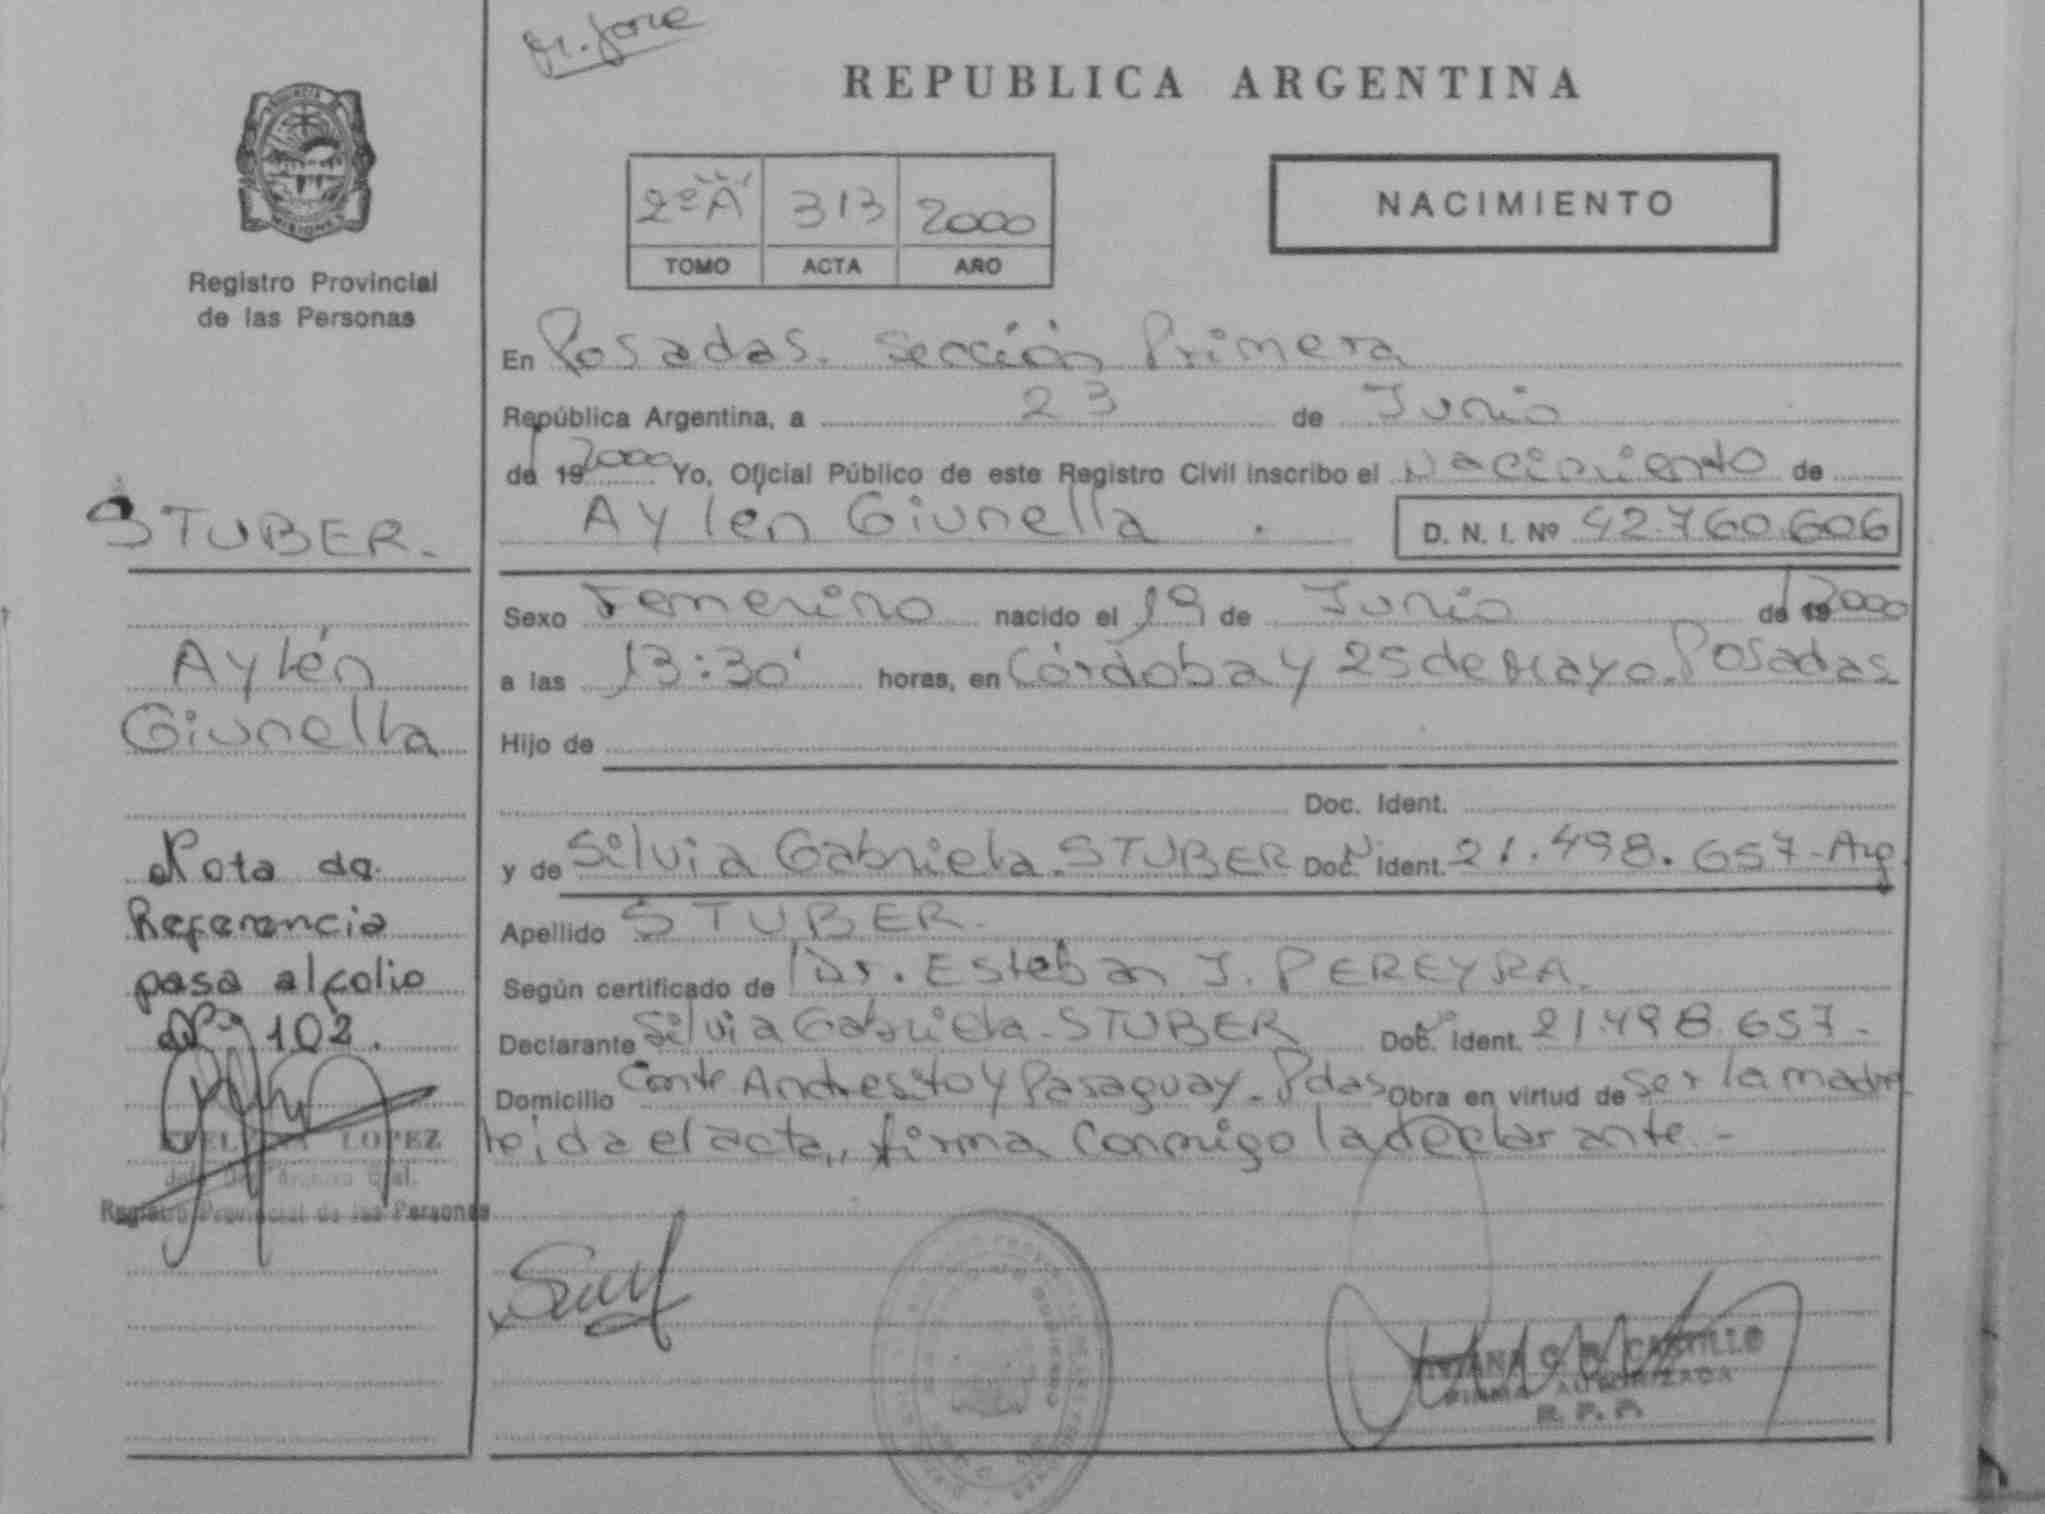 M. Jose
REPUBLICA ARGENTINA
2º "A" 313 2000
TOMO ACTA AÑO
NACIMIENTO
Registro Provincial
de las Personas
En Posadas. Sección Primera
República Argentina, a 23 de Junio
de 19 2000 Yo, Oficial Público de este Registro Civil inscribo el Nacimiento de
Aylén Giunella . D. N. I. Nº 42.760.606
Sexo Femenino nacido el 19 de Junio de 19 2000
a las 13:30' horas, en Córdoba y 25 de Mayo. Posadas
Hijo de
Doc. Ident.
y de Silvia Gabriela. STUBER Doc. Ident. 21.498.657-Arg.
Apellido STUBER.
Según certificado de Dr. Esteban J. PEREYRA.
Declarante Silvia Gabriela-STUBER Doc. Ident. 21.498.657-
Domicilio Cmte Andresito y Paraguay-Pdas Obra en virtud de ser la madre
leida el acta, firma conmigo la declarante-
STUBER.
Aylén
Giunella
Nota de
Referencia
pasa al folio
Nº 102.
LOPEZ
Archivo Gral.
Registro Provincial de las Personas
C. R. CASTILLO
FIRMA AUTORIZADA
R. P. P.